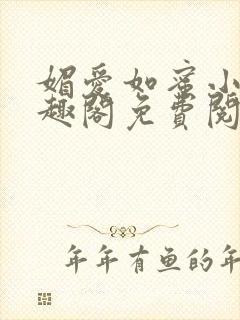 媚爱如蜜小
趣阁免费阅
年年有鱼的年